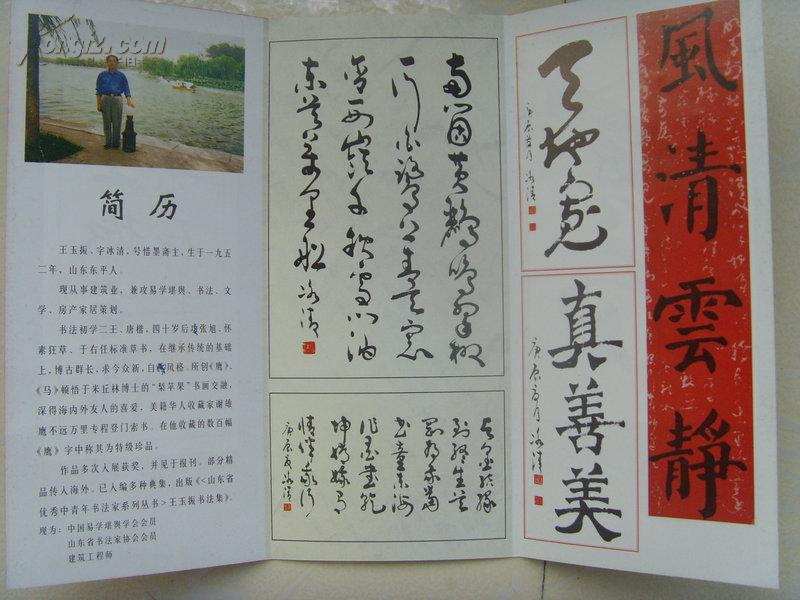 简 历
王玉振、字冰清,号惜墨斋主,生于一九五
二年,山东东平人。
现从事建筑业,兼攻易学堪舆、书法、文
学、房产家居策划。
书法初学二王、唐楷,四十岁后攻张旭、怀
素狂草、于右任标准草书,在继承传统的基础
上,博古群长,求今众新,自 风格。所创《鹰》、
《马》顿悟于米丘林博士的“梨苹果”书画交融,
深得海内外友人的喜爱,美籍华人收藏家谢雄
鹰不远万里专程登门索书。在他收藏的数百幅
《鹰》字中称其为特级珍品。
作品多次入展获奖,并见于报刊。部分精
品传入海外。已入编多种典集,出版《<山东省
优秀中青年书法家系列丛书>王玉振书法集》。
现为:中国易学堪舆学会会员
山东省书法家协会会员
建筑工程师
两个黄鹂鸣翠柳
一行白鹭上青天窗
含西岭千秋雪门泊
东吴万里船 冰清
庚辰夏冰清
天地宽
庚辰夏月 冰清
真善美
庚辰夏月 冰清
風清雲靜